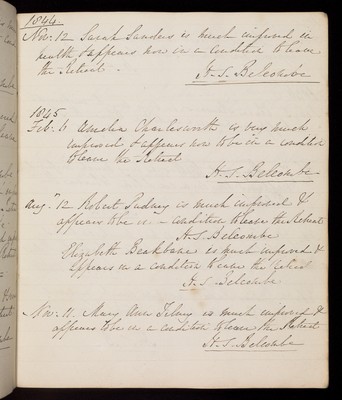 1844
Nov. 12 Sarah Sanders is much improved in
health & appears now in a condition to leave
the Retreat.
H. S. Belcombe
1845
Feb. 11 Amelia Charlesworth is very much
improved & appears now to be in a condition
to leave the Retreat
H. S. Belcombe
Aug. 12 Robert is much improved &
appears to be in a condition to leave the Retreat
H. S. Belcombe
Elizabeth is much improved &
appears in a condition to leave the Retreat
H. S. Belcombe
Nov. 11. Mary Ann is much improved &
appears to be in a condition to leave the Retreat
H. S. Belcombe